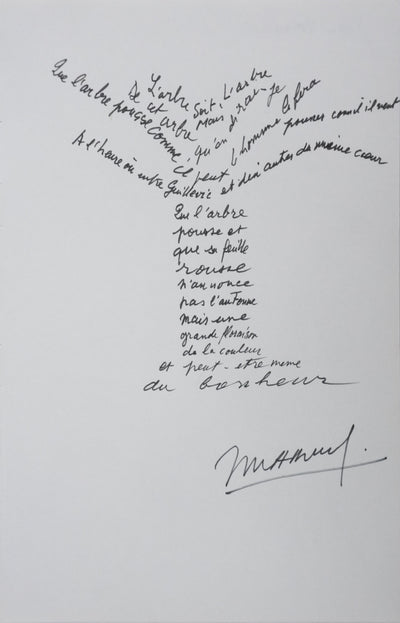 L'arbre soit, L'arbre
De cet arbre mais qu'en dirai-je
Que l'arbre pousse comme il peut l'homme le fera
pousser comme il vient
A l'heure où entre Guillevic et dix autres du même cœur
Que l'arbre
pousse et
que sa feuille
rousse
n'annonce
pas l'automne
mais une
grande floraison
de la couleur
et peut-être même
du bonheur